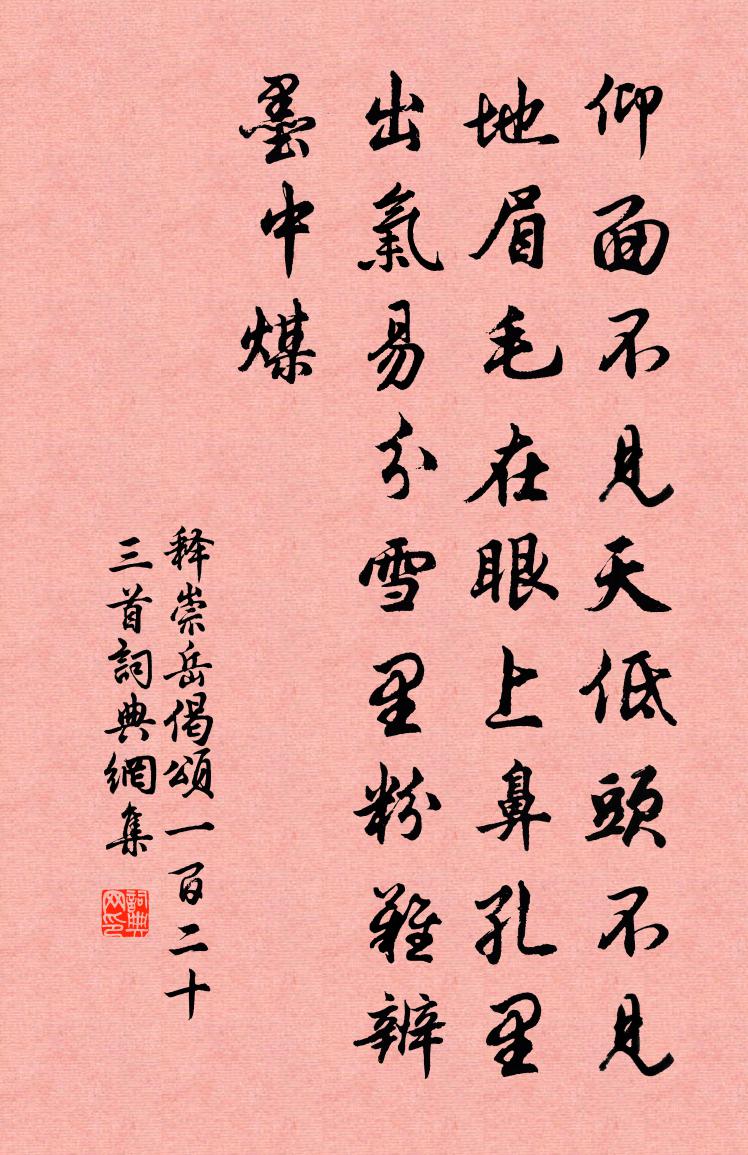 仰面不見天低頭不見
地眉毛在眼上鼻孔里
出氣易分雪里粉難辨
墨中煤
释崇岳偈頌一百二十
三首詞典網集
詞典
网印